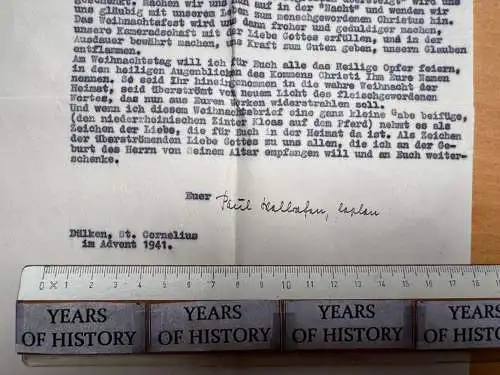 geschenkt. Machen wir uns auf in der "Nacht" und wenden wir
mit unserem zum menschgewordenen Christus hin.
Das Weihnachtsfest wird uns dann froher und geduldiger machen,
unsere Kameradschaft mit der Liebe Gottes erfüllen, und in der
Ausdauer bewährt machen, uns Kraft zum Guten geben, unsern Glauben
entflammen.
Am Weihnachtstag will ich für Euch alle das Heilige Opfer feiern,
in den heiligen Augenblicken des Kommens Christi Ihm Eure Namen
nennen. So seid Ihr hineingenommen in die wahre Weihnacht der
Heimat, seid überströmt von neuem Licht des fleischgewordenen
Wortes, das nun aus Euren Werken widerstrahlen soll.
Und wenn ich diesem Weihnachtsbrief eine ganz kleine Gabe beifüge,
(den niederrheinischen Zinter Kloas auf dem Pferd) nehmt es als
Zeichen der Liebe, die für Euch in der Heimat da ist. Als Zeichen
der überströmenden Liebe Gottes zu uns allen, die ich an der Ge-
burt des Herrn von Seinem Altar empfangen will und an Euch weiter-
schenke.
Euer Paul Kaplan
Dülken, St. Cornelius
im Advent 1941.
0 1 2 3 4 5 6 7 8 9 10 11 12 13 14 15 16
YEARS OF HISTORY YEARS OF HISTORY YEARS OF HISTORY YEARS OF HISTORY